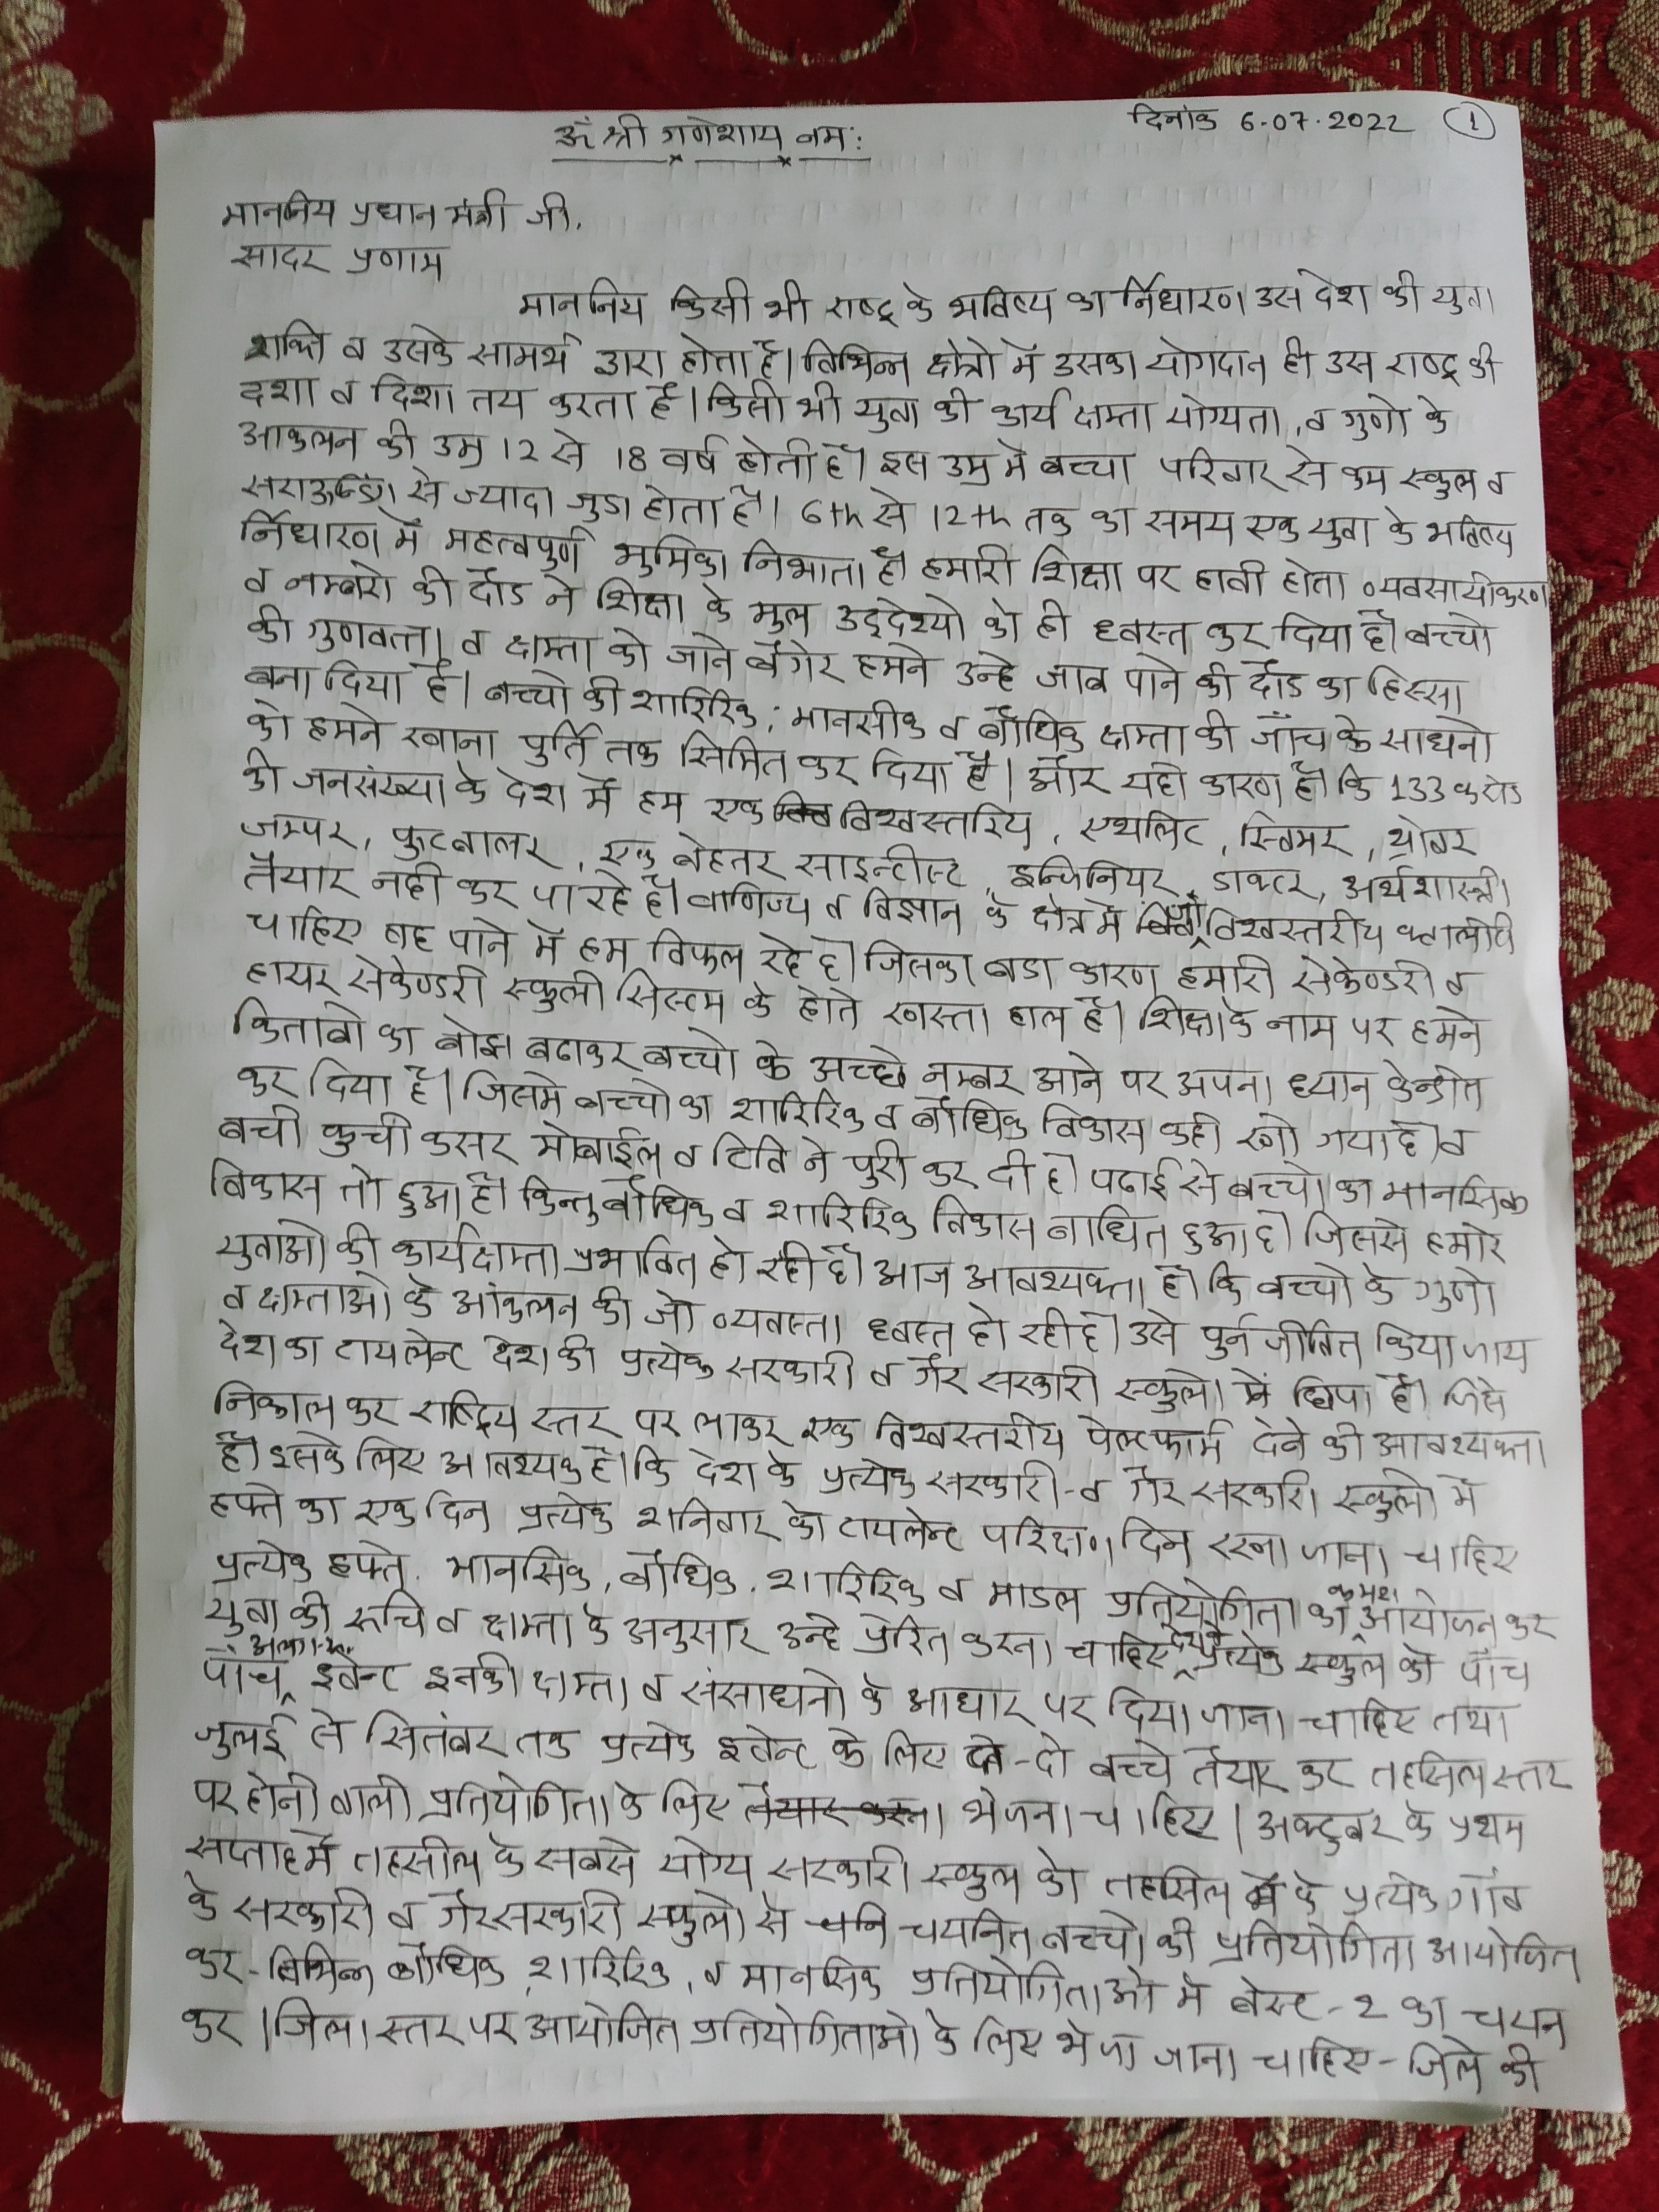 दिनांक 6.07.2022 (1)
ॐ श्री गणेशाय नमः
माननिय प्रधान मंत्री जी,
सादर प्रणाम
माननिय किसी भी राष्ट्र के भविष्य का र्निधारण उस देश की युवा
शक्ति व उसके सामर्थ द्वारा होता है। विभिन्न क्षेत्रो में उसका योगदान ही उस राष्ट्र की
दशा व दिशा तय करता है। किसी भी युवा की कार्य क्षमता योग्यता, व गुणो के
आकलन की उम्र 12 से 18 वर्ष होती है। इस उम्र मे बच्चा परिवार से कम स्कुल व
सराऊण्डींग से ज्यादा जुडा होता है। 6th से 12th तक का समय एक युवा के भविष्य
र्निधारण में महत्वपुर्ण भुमिका निभाता है। हमारी शिक्षा पर हावी होता व्यवसायीकरण
व नम्बरो की दौड ने शिक्षा के मुल उद्देश्यो को ही ध्वस्त कर दिया है। बच्चो
की गुणवत्ता व क्षमता को जाने बेगेर हमने उन्हे जाब पाने की दौड का हिस्सा
बना दिया है। बच्चो की शारिरिक, मानसीक व बौधिक क्षमता की जाँच के साधनो
को हमने खाना पुर्ति तक सिमित कर दिया है। और यही कारण है। कि 133 करोड
की जनसंख्या के देश में हम एक विश्वस्तरिय, एथलिट, स्विमर, थ्रोवर
जम्पर, फुटबालर, एक बेहतर साइन्टीस्ट, इन्जिनियर, डाक्टर, अर्थशास्त्री
तैयार नही कर पा रहे है। वाणिज्य व विज्ञान के क्षेत्र में जो विश्वस्तरीय क्वालीटी
चाहिए वह पाने में हम विफल रहे है। जिसका बडा कारण हमारी सेकेण्डरी व
हायर सेकेण्डरी स्कुली सिस्टम के होते खस्ता हाल है। शिक्षा के नाम पर हमने
किताबो का बोझ बढाकर बच्चो के अच्छे नम्बर आने पर अपना ध्यान केन्द्रीत
कर दिया है। जिसमे बच्चो का शारिरिक व बौधिक विकास कही खो गया है। व
बची कुची कसर मोबाईल व टिवि ने पुरी कर दी है। पढाई से बच्चो का मानसिक
विकास तो हुआ है। किन्तु बौधिक व शारिरिक विकास बाधित हुआ है। जिससे हमारे
युवाओ की कार्यक्षमता प्रभावित हो रही है। आज आवश्यक्ता है। कि बच्चो के गुणो
व क्षमताओ के आंकलन की जो व्यवस्ता ध्वस्त हो रही है। उसे पुर्न जीवित किया जाय
देश का टायलेन्ट देश की प्रत्येक सरकारी व गैर सरकारी स्कुलो में छिपा है। जिसे
निकाल कर राष्ट्रिय स्तर पर लाकर एक विश्वस्तरीय पेल्टफार्म देने की आवश्यक्ता
है। इसके लिए आवश्यक है। कि देश के प्रत्येक सरकारी व गैर सरकारी स्कुलो में
हफ्ते का एक दिन प्रत्येक शनिवार को टायलेन्ट परिक्षण दिन रखना जाना चाहिए
प्रत्येक हफ्ते, मानसिक, बौधिक, शारिरिक व माडल प्रतियोगिता का क्रमशः आयोजन कर
युवा की रुचि व क्षमता के अनुसार उन्हे प्रेरित करना चाहिए प्रत्येक स्कुल को पाँच
पाँच अलग-अलग इवेन्ट इनकी क्षमता व संसाधनो के आधार पर दिया जाना चाहिए तथा
जुलाई से सितंबर तक प्रत्येक इवेन्ट के लिए दो-दो बच्चे तैयार कर तहसिल स्तर
पर होनी वाली प्रतियोगिता के लिए तैयार करना भेजना चाहिए। अक्टुबर के प्रथम
सप्ताह में तहसील के सबसे योग्य सरकारी स्कुल को तहसिल के प्रत्येक गाँव
के सरकारी व गैरसरकारी स्कुलो से चयनित बच्चो की प्रतियोगिता आयोजित
कर विभिन्न बौधिक, शारिरिक, व मानसिक प्रतियोगिताओ मे बेस्ट-2 का चयन
कर। जिला स्तर पर आयोजित प्रतियोगिताओ के लिए भेजा जाना चाहिए - जिले की